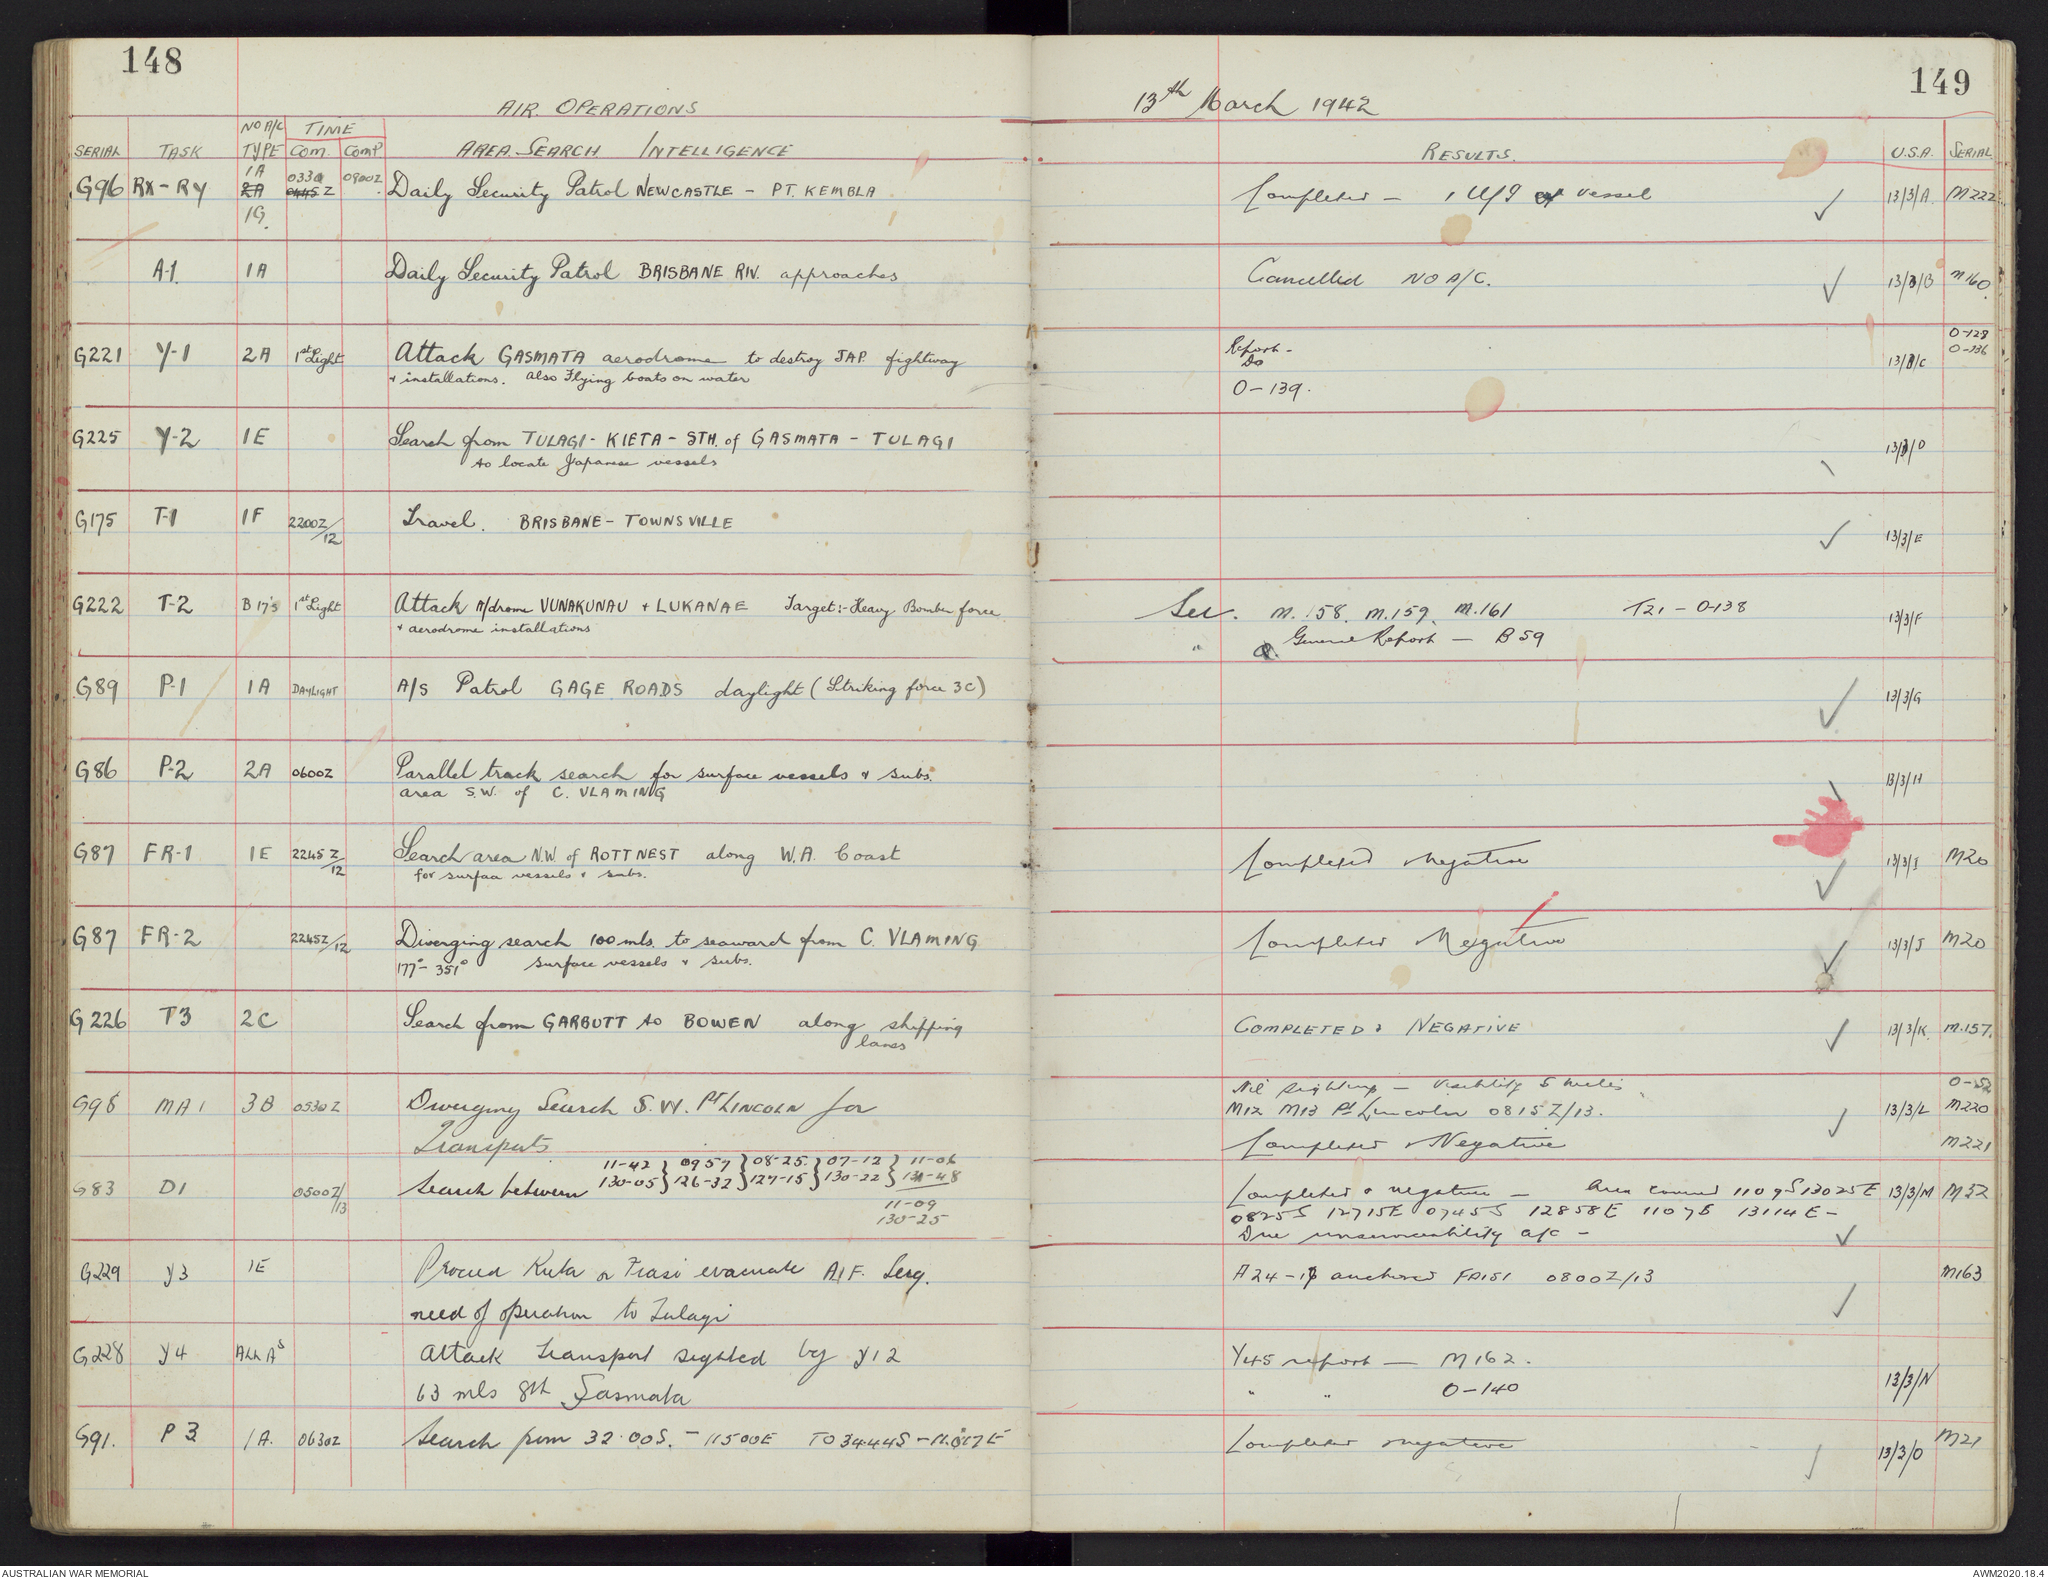 148
AIR OPERATIONS
SERIAL TASK NO A/C TYPE TIME COM. COMP AREA SEARCH INTELLIGENCE
G96 RX-RY 1A 2A 1G. 0330 0445Z 0900Z. Daily Security Patrol NEWCASTLE - PT. KEMBLA
A-1. 1A Daily Security Patrol BRISBANE RIV. approaches
G221 Y-1 2A 1st Light Attack GASMATA aerodrome to destroy JAP. fightway
+ installations. also Flying boats on water
G225 Y-2 1E Search from TULAGI - KIETA - STH. of GASMATA - TULAGI
to locate Japanese vessels
G175 T-1 1F 2200Z/12 Travel. BRISBANE - TOWNSVILLE
G222 T-2 B17's 1st Light Attack A/drome VUNAKUNAU + LUKANAE Target:- Heavy Bomber force
+ aerodrome installations
G89 P-1 1A DAYLIGHT A/S Patrol GAGE ROADS daylight (Striking force 3C)
G86 P-2 2A 0600Z Parallel track search for surface vessels & subs.
area S.W. of C. VLAMING
G87 FR-1 1E 2245Z/12 Search area N.W. of ROTTNEST along W.A. Coast
for surface vessels & subs.
G87 FR-2 2245Z/12 Diverging search 100 mls. to seaward from C. VLAMING
177° - 351° surface vessels & subs.
G226 T3 2C Search from GARBUTT to BOWEN along shipping
lanes
G98 MA1 3B 0530Z Diverging Search S.W. PT LINCOLN for
Transports
G83 D1 0500Z/13 Search between 11-42 130-05 } 0957 126-32 } 08-25. 127-15 } 07-12 130-22 } 11-06 131-48
11-09
130-25
G229 Y3 1E Proceed Kieta or evacuate A.I.F. Serg.
need of operation to Tulagi
G228 Y4 ALL A's Attack transport sighted by Y12
63 mls Sth Gasmata
G91. P3 1A. 0630Z Search from 32.00S. - 11500E TO 3444S -
149
13th March 1942
RESULTS. U.S.A. SERIAL
Completed - 1 U/I vessel 13/3/A. M222
Cancelled NO A/C. 13/3/B M160.
Report - 13/3/C O-128
Do O-136
O-139.
13/3/D
13/3/E
See. M.158. M.159. M.161 T21 - O-138 13/3/F
" General Report - B59
13/3/G
13/3/H
Completed Negative 13/3/I M20
Completed Negative 13/3/J M20
COMPLETED & NEGATIVE 13/3/K. M.157.
Nil sightings - Visibility 5 miles O-152
M12 M13 Pt Lincoln 0815Z/13. 13/3/L M220
Completed & Negative M221
Completed & negative - Area covered 1109S 13025E 13/3/M M32
0825S 12715E 0745S 12858E 1107S 13114E -
Due unserviceability a/c -
A24-17 anchored 0800Z/13 M163
Y45 report - M162.
" " O-140 13/3/N
Completed negative 13/3/O M21
AUSTRALIAN WAR MEMORIAL
AWM2020.18.4